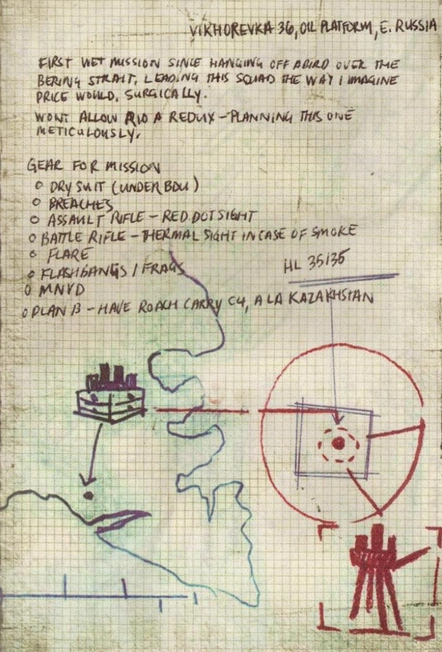 VIKHOREVKA 36, OIL PLATFORM, E. RUSSIA
FIRST WET MISSION SINCE HANGING OFF A BIRD OVER THE
BERING STRAIT. LEADING THIS SQUAD THE WAY I IMAGINE
PRICE WOULD, SURGICALLY.
WONT ALLOW RIO A REDUX - PLANNING THIS ONE
METICULOUSLY.
GEAR FOR MISSION
o DRY SUIT (UNDER BDU)
o BREACHES
o ASSAULT RIFLE - RED DOT SIGHT
o BATTLE RIFLE - THERMAL SIGHT IN CASE OF SMOKE
o FLARE
o FLASHBANGS / FRAGS
o MNVD
o PLAN B - HAVE ROACH CARRY C4, A LA KAZAKHSTAN
HL 35135